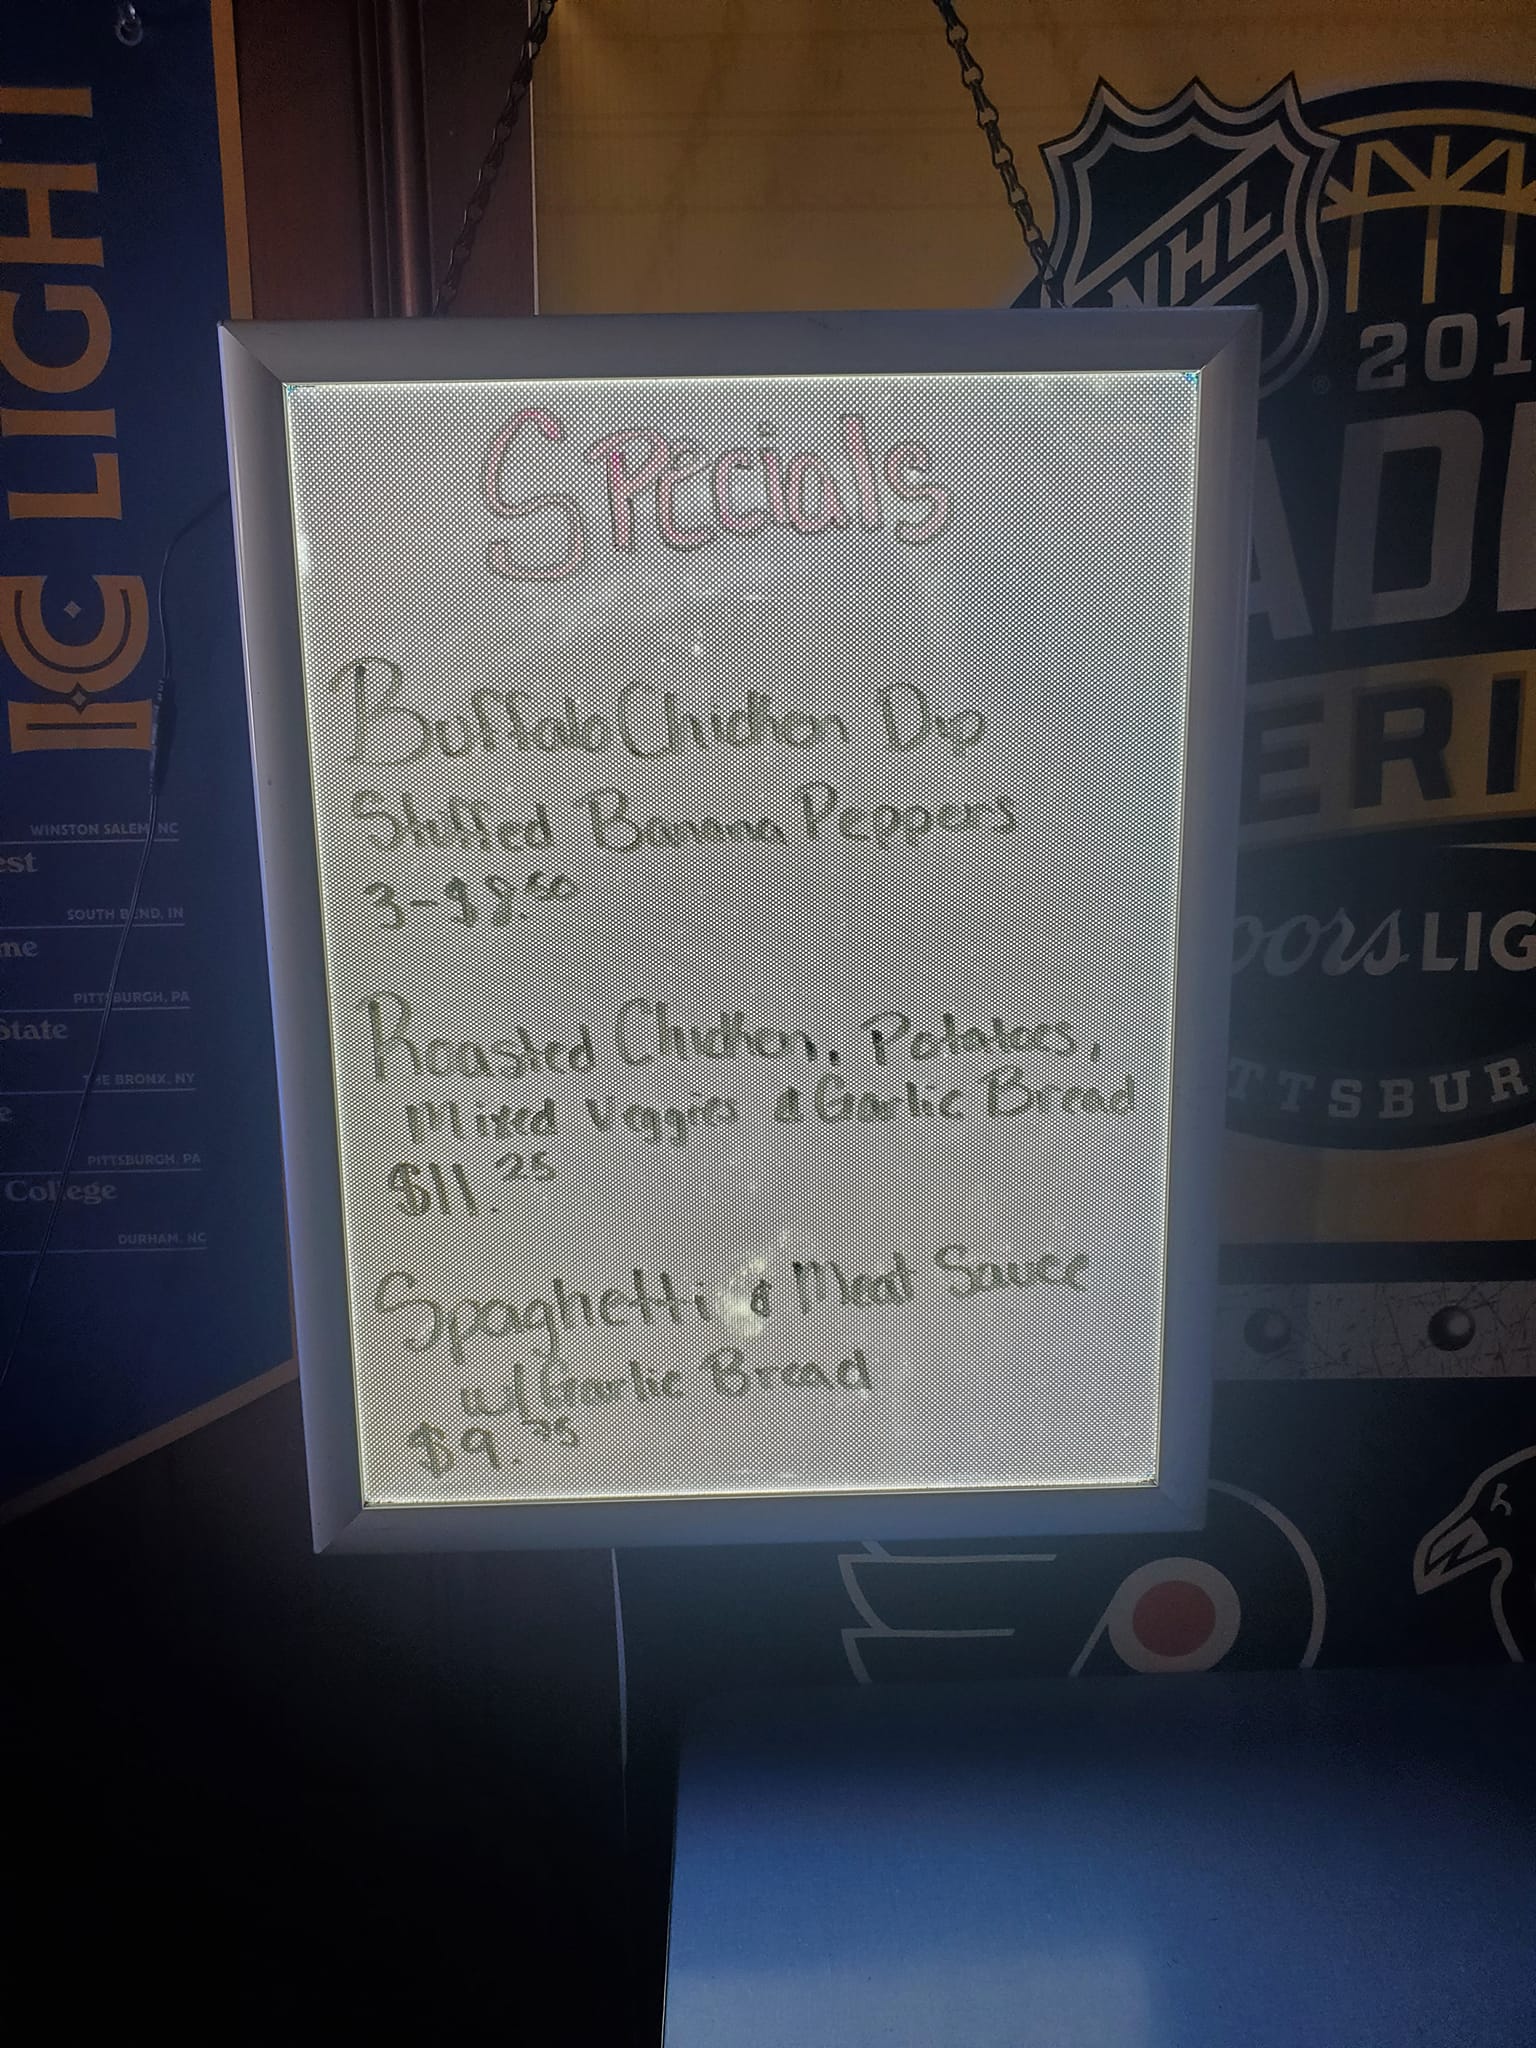 Specials
Buffalo Chicken Dip
Stuffed Banana Peppers
3-$8.00
Roasted Chicken, Potatoes,
Mixed Veggies & Garlic Bread
$11.25
Spaghetti & Meat Sauce
w/Garlic Bread
$9.75
IC LIGHT
WINSTON SALEM, NC
est
SOUTH BEND, IN
me
PITTSBURGH, PA
State
THE BRONX, NY
e
PITTSBURGH, PA
College
DURHAM, NC
NHL
201
ADI
ERI
oors LIG
TTSBUR